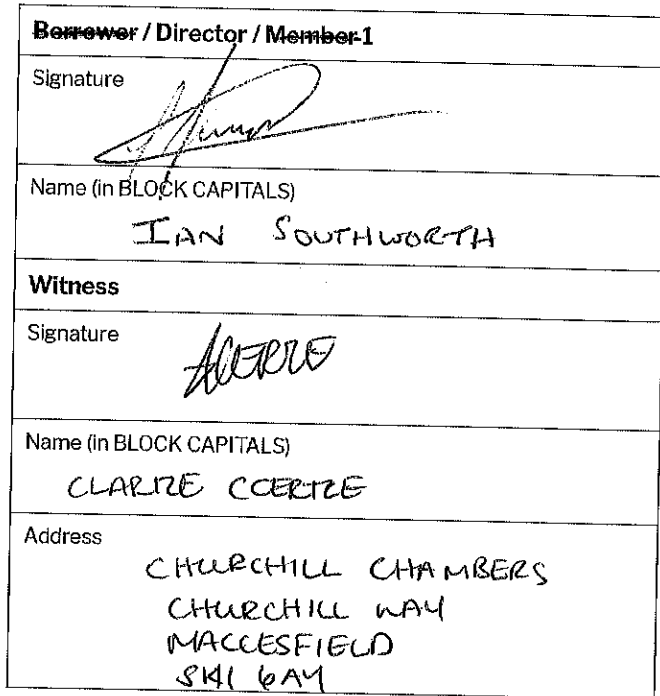 Borrower / Director / Member 1
Signature
Name (in BLOCK CAPITALS)
IAN SOUTHWORTH
Witness
Signature
Name (in BLOCK CAPITALS)
CLARIZE COERTZE
Address
CHURCHILL CHAMBERS
CHURCHILL WAY
MACCESFIELD
SK11 6AY